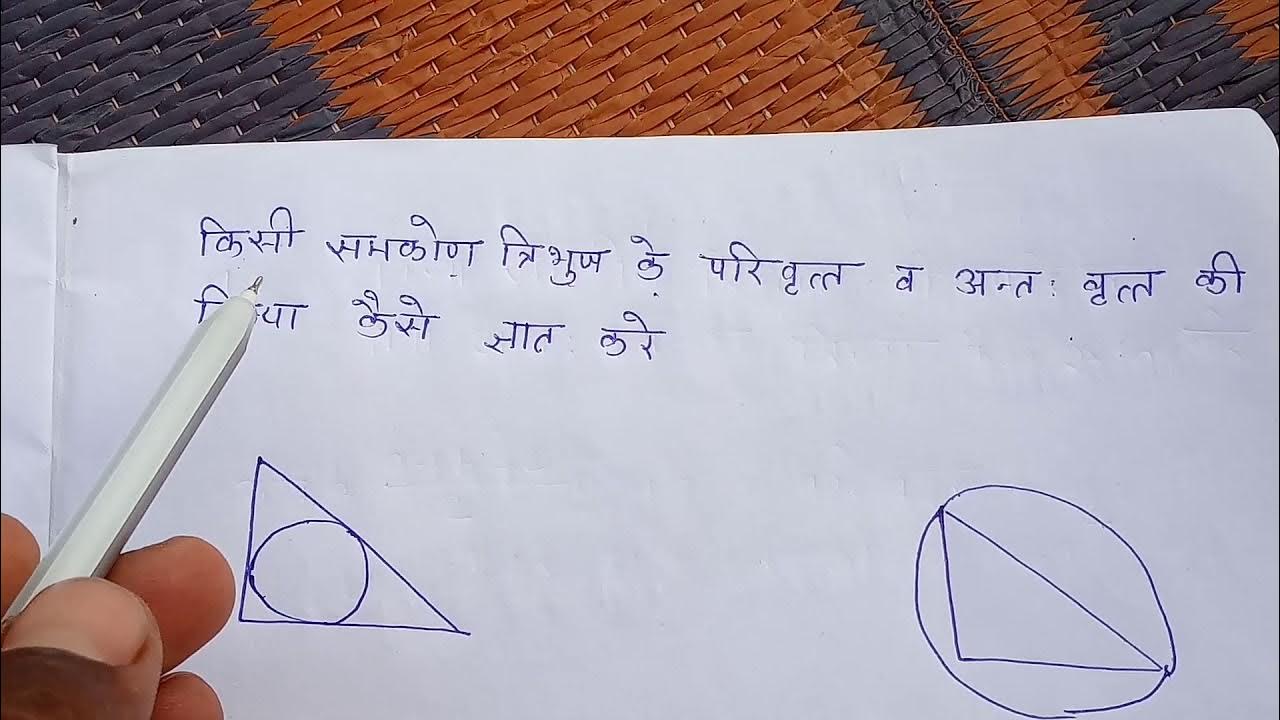 किसी समकोण त्रिभुज के परिवृत्त व अन्त: वृत्त की
कैसे ज्ञात करे